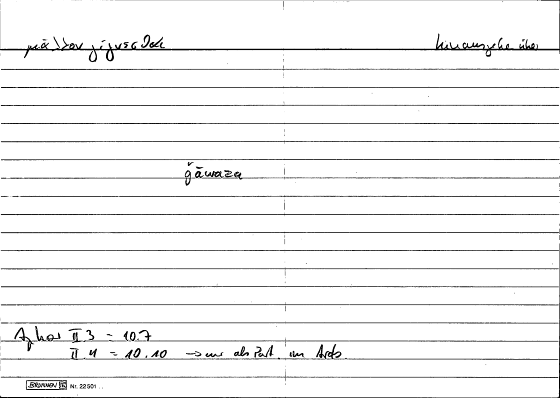 μᾶλλον γίγνεσθαι hinausgehe über
ǧāwaza
Aphor II.3 = 10.7
II.4 = 10.10 → nur als Part. im Arab.
BRUNNEN Nr. 22501